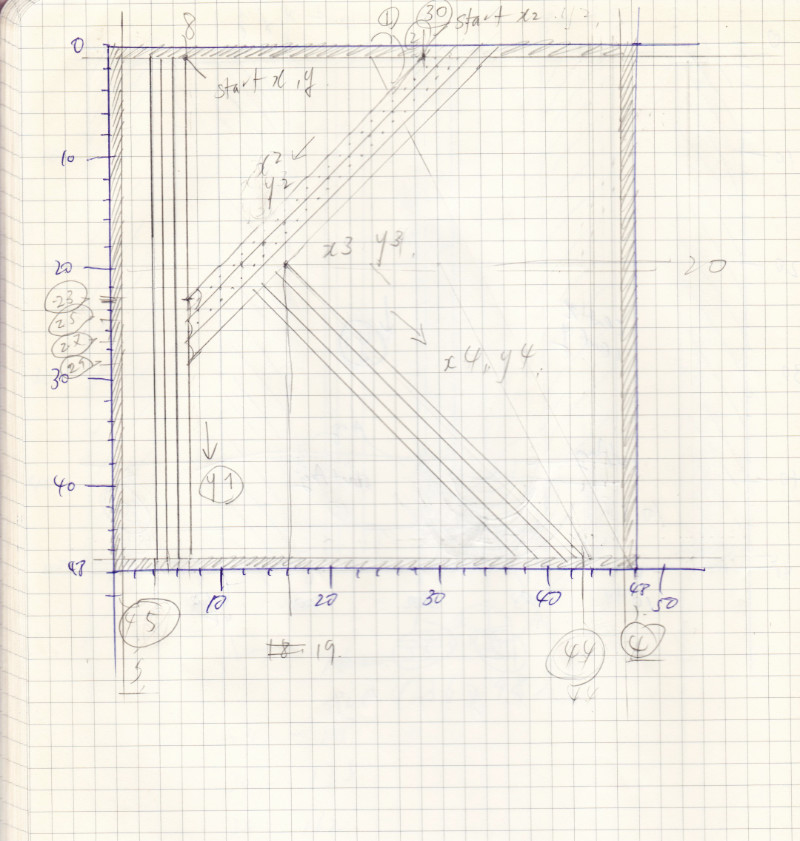 8
1
30
start x2
2
0
start x, y
10
x2
y2
x3 y3
20
20
23
25
27
29
30
x4, y4
40
y1
48
10
20
30
40
48
50
45
18 19
44
4
5